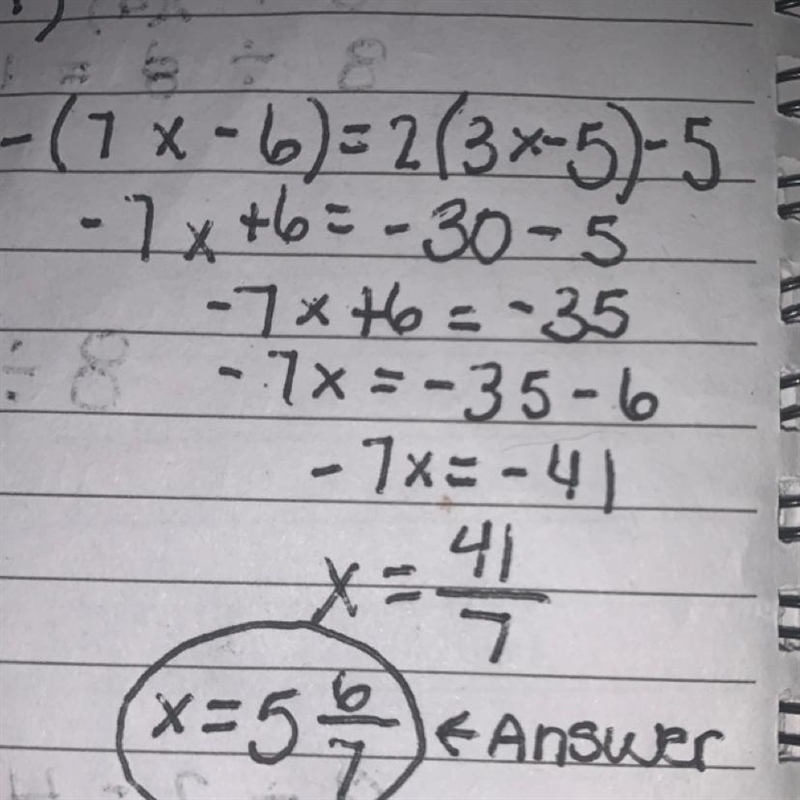 -(7x-6)=2(3x-5)-5
-7x+6=-30-5
-7x+6=-35
-7x=-35-6
-7x=-41
x=41/7
x=5 6/7 ← Answer